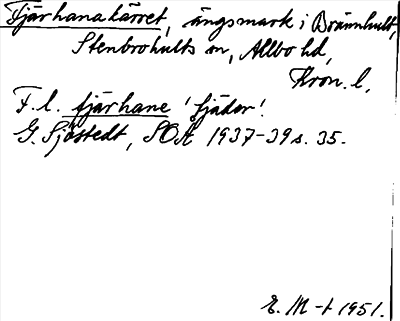 Fjärhanakärret, ängsmark i Brännhult,
Stenbrohults sn, Allbo hd,
Kron. l.
F. l. fjärhane 'fjäder'.
G. Sjöstedt, SOÅ 1937-39 s. 35.
E. M-t 1951.